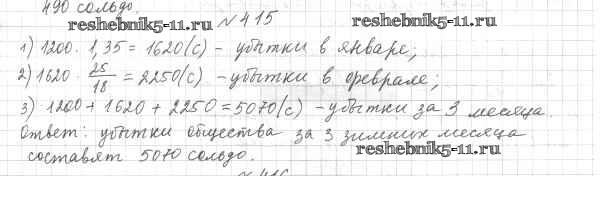 490 сольдо.
reshebnik5-11.ru №415 reshebnik5-11.ru
1) 1200 · 1,35 = 1620 (с) - убытки в январе;
2) 1620 · 25/18 = 2250 (с) - убытки в феврале;
3) 1200 + 1620 + 2250 = 5070 (с) - убытки за 3 месяца.
Ответ: убытки общества за 3 зимних месяца
составят 5070 сольдо. reshebnik5-11.ru
№416